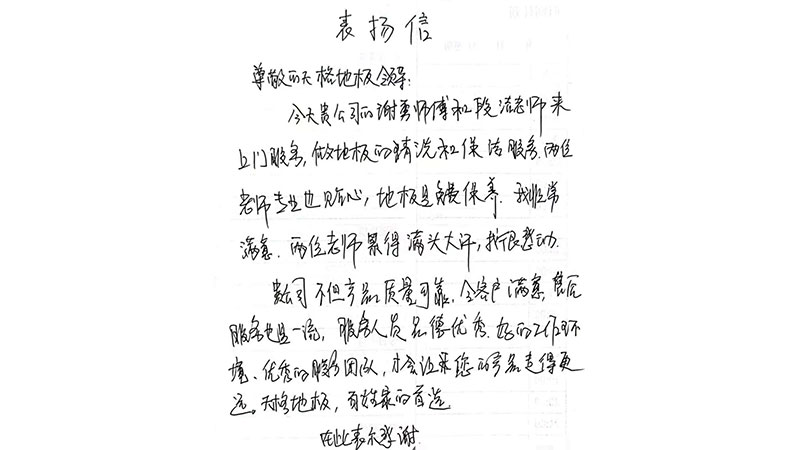 表扬信
尊敬的天格地板领导:
今天贵公司的谢勇师傅和段洁老师来
上门服务,做地板的清洗和保洁服务.两位
老师专业也贴心,地板是免费保养.我非常
满意.两位老师累得满头大汗,我很感动.
贵公司不但产品质量可靠.令客户满意,售后
服务也是一流,服务人员品德优秀.好的工作环
境、优秀的服务团队,才会让您的产品走得更
远。天格地板,百姓家的首选
在此表示感谢.